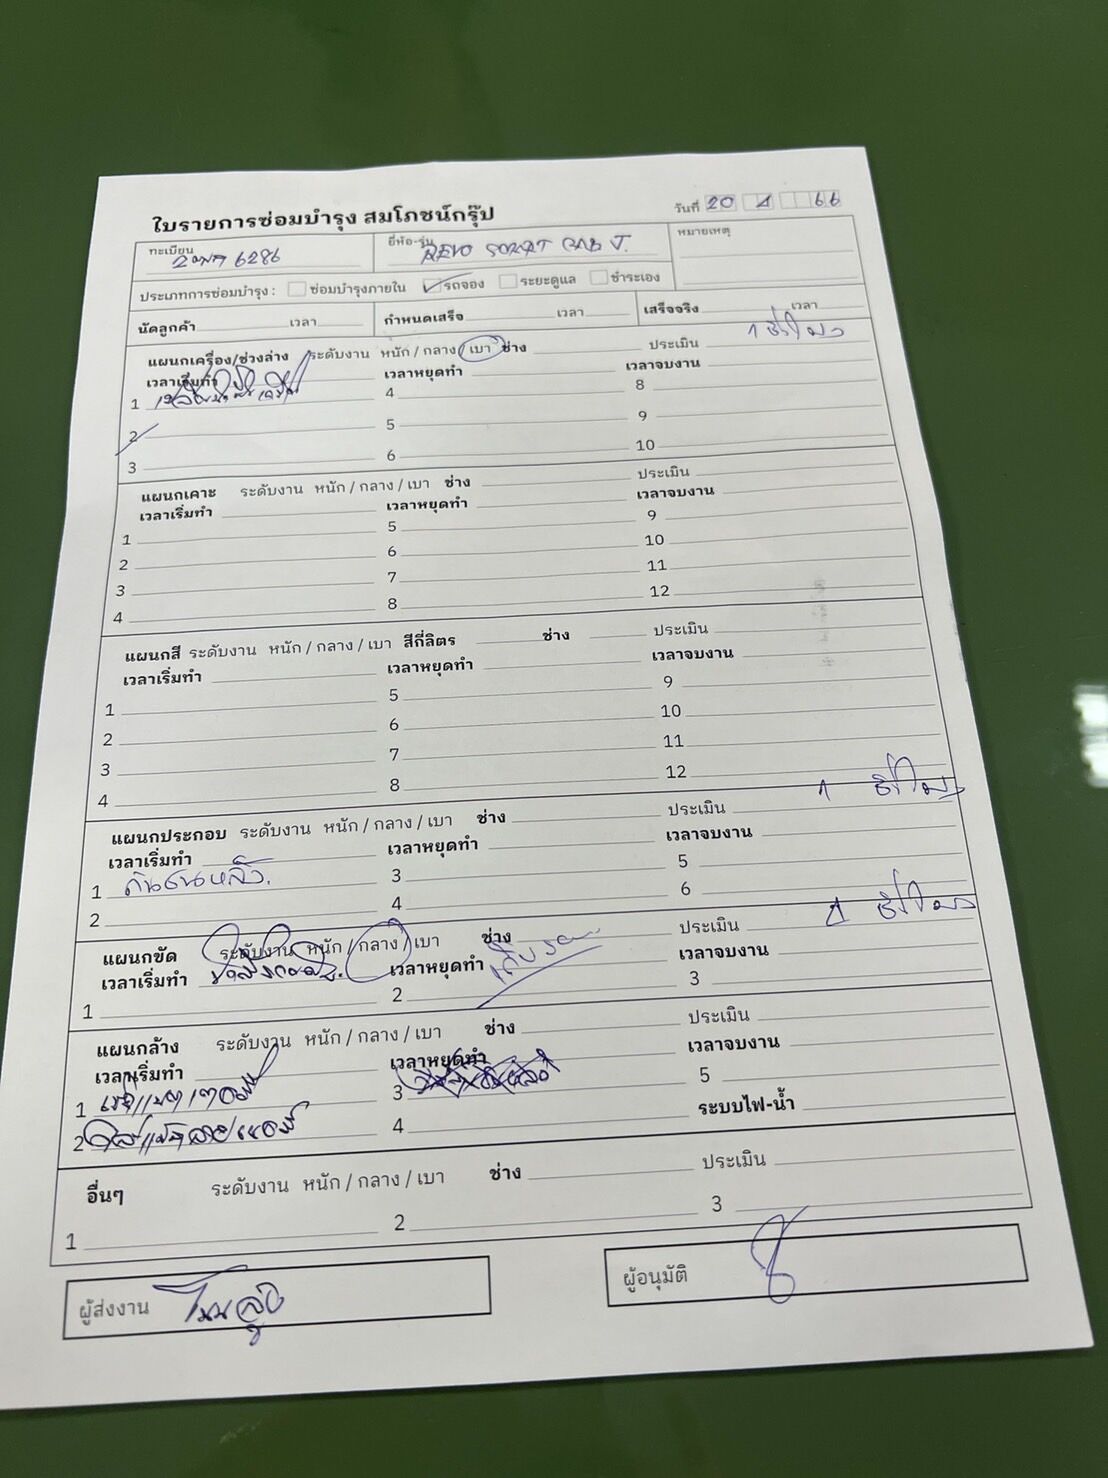 ใบรายการซ่อมบำรุง สมโภชน์กรุ๊ป
วันที่ 20 4 66
ทะเบียน 6286 ยี่ห้อ-รุ่น REVO SMART CAB J. หมายเหตุ
ประเภทการซ่อมบำรุง : ซ่อมบำรุงภายใน รถจอง ระยะดูแล ชำระเอง
นัดลูกค้า เวลา กำหนดเสร็จ เวลา เสร็จจริง เวลา
แผนกเครื่อง/ช่วงล่าง ระดับงาน หนัก / กลาง / เบา ช่าง ประเมิน 1 ชั่วโมง
เวลาเริ่มทำ เวลาหยุดทำ เวลาจบงาน
1 4 8
2 5 9
3 6 10
แผนกเคาะ ระดับงาน หนัก / กลาง / เบา ช่าง ประเมิน
เวลาเริ่มทำ เวลาหยุดทำ เวลาจบงาน
1 5 9
2 6 10
3 7 11
4 8 12
แผนกสี ระดับงาน หนัก / กลาง / เบา สีกี่ลิตร ช่าง ประเมิน
เวลาเริ่มทำ เวลาหยุดทำ เวลาจบงาน
1 5 9
2 6 10
3 7 11
4 8 12
แผนกประกอบ ระดับงาน หนัก / กลาง / เบา ช่าง ประเมิน 1 ชั่วโมง
เวลาเริ่มทำ เวลาหยุดทำ เวลาจบงาน
1 กันชนหลัง. 3 5
2 4 6
แผนกขัด ระดับงาน หนัก / กลาง / เบา ช่าง ประเมิน 1 ชั่วโมง
เวลาเริ่มทำ เวลาหยุดทำ เวลาจบงาน
1 2 3
แผนกล้าง ระดับงาน หนัก / กลาง / เบา ช่าง ประเมิน
เวลาเริ่มทำ เวลาหยุดทำ เวลาจบงาน
1 3 5
2 4 ระบบไฟ-น้ำ
อื่นๆ ระดับงาน หนัก / กลาง / เบา ช่าง ประเมิน
1 2 3
ผู้ส่งงาน ผู้อนุมัติ